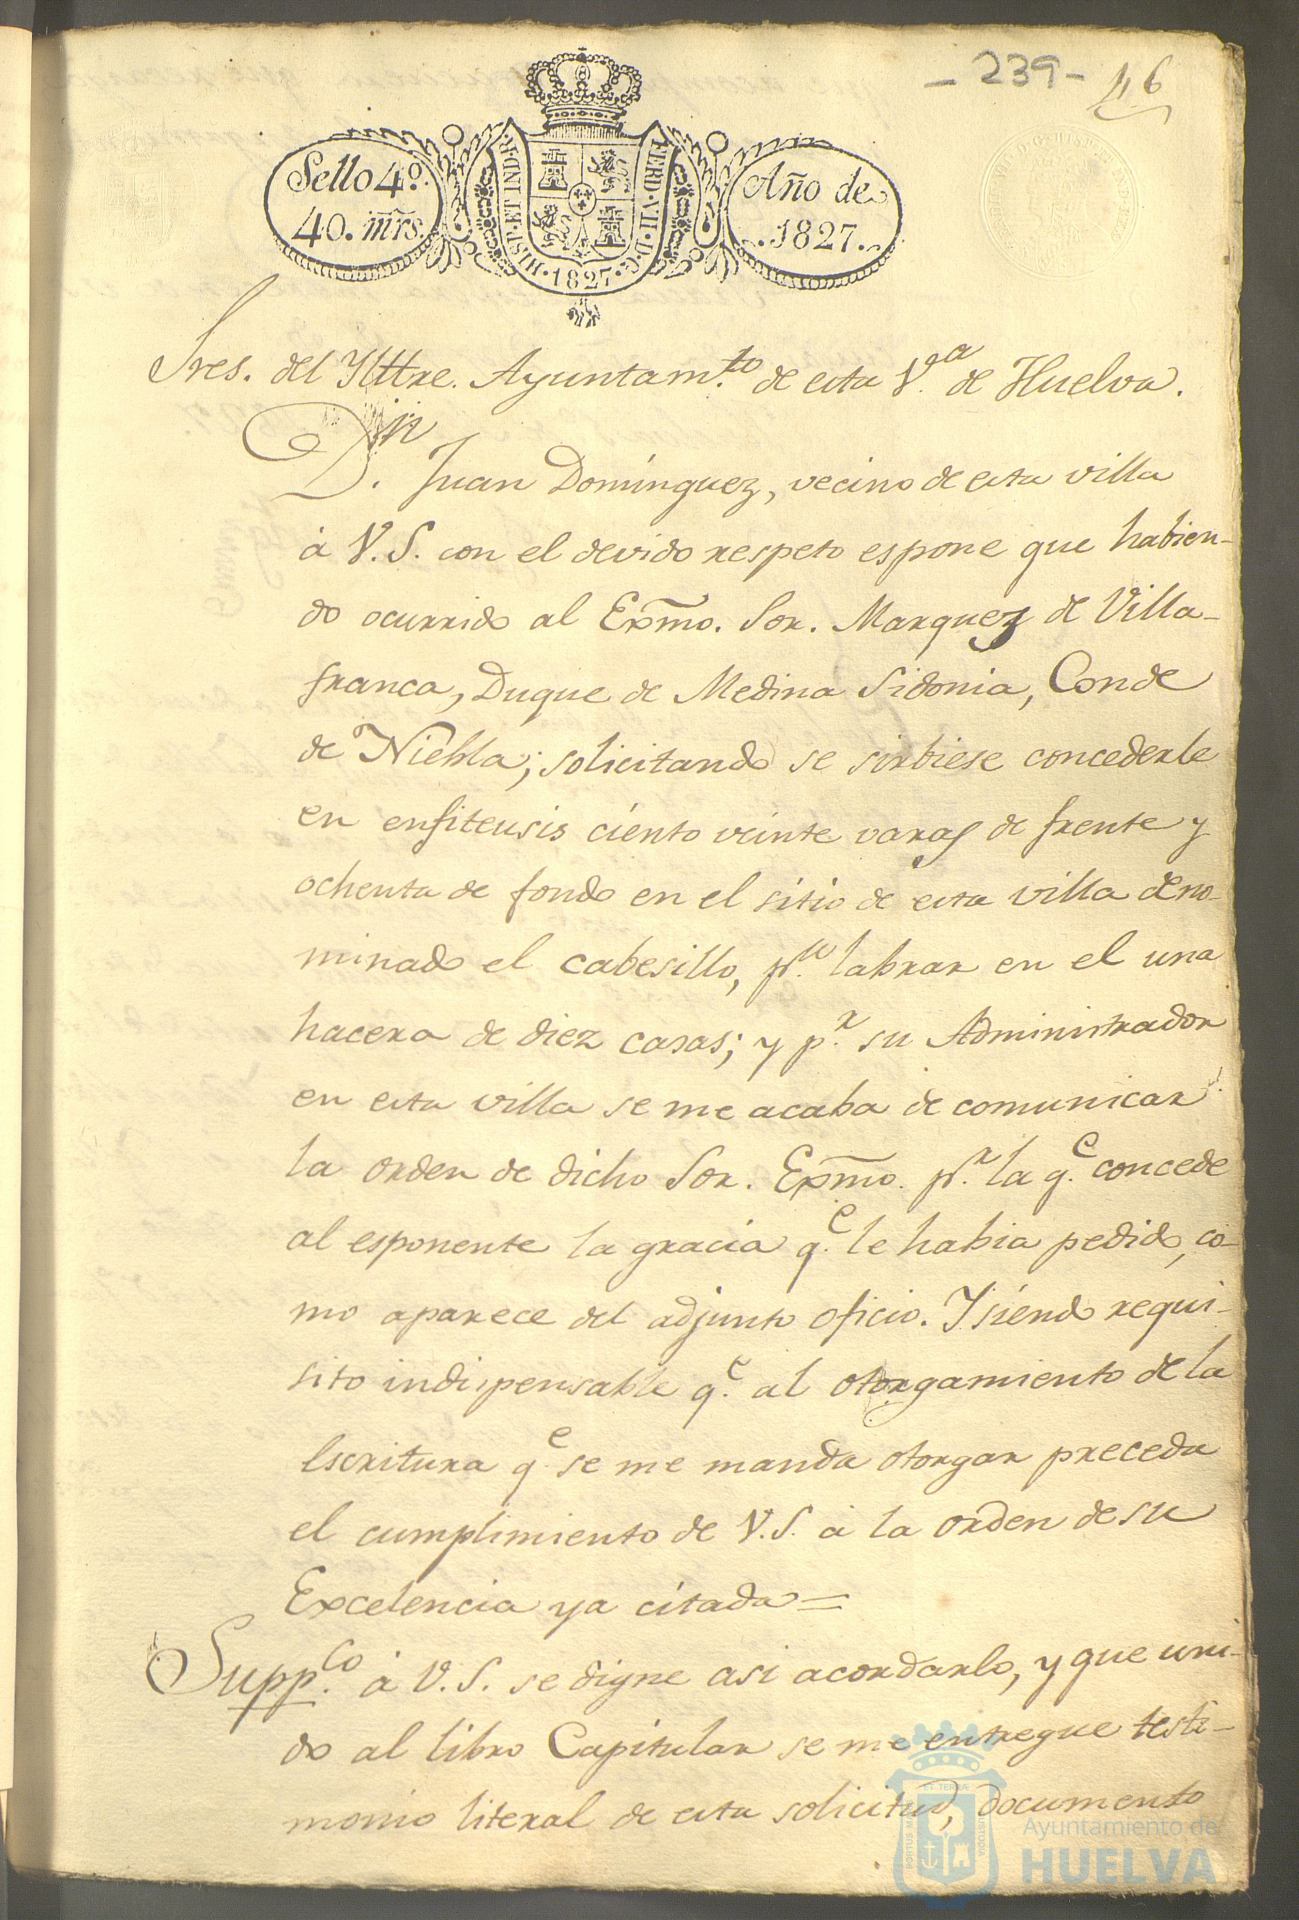 - 239 - 46
Sello 4º. 40. mrs.
HISP. ET IND. R. FERD. VII. D. G. 1827.
Año de 1827.
Sres. del Ylttre. Ayuntam.to de esta V.a de Huelva.
D.n Juan Domínguez, vecino de esta villa
à V.S. con el devido respeto espone que habien-
do ocurrido al Exmo. Sor. Marquez de Villa-
franca, Duque de Medina Sidonia, Conde
de Niebla; solicitando se sirbiese concederle
en enfiteusis ciento veinte varas de frente y
ochenta de fondo en el sitio de esta villa deno-
minado el cabesillo, p.a labrar en el una
hacera de diez casas; y p.r su Administrador
en esta villa se me acaba de comunicar
la orden de dicho Sor. Exmo. p.r la q.e concede
al esponente la gracia q.e le habia pedido, co-
mo aparece del adjunto oficio. Y siendo requi-
sito indispensable q.e al otorgamiento de la
Escritura q.e se me manda otorgar preceda
el cumplimiento de V.S. à la orden de su
Excelencia ya citada =
Supp.co à V.S. se digne asi acordarlo, y que uni-
do al libro Capitular se me entregue testi-
monio literal de esta solicitud, documento
PORTUS MARIS ET TERRÆ CUSTODIA
Ayuntamiento de
HUELVA